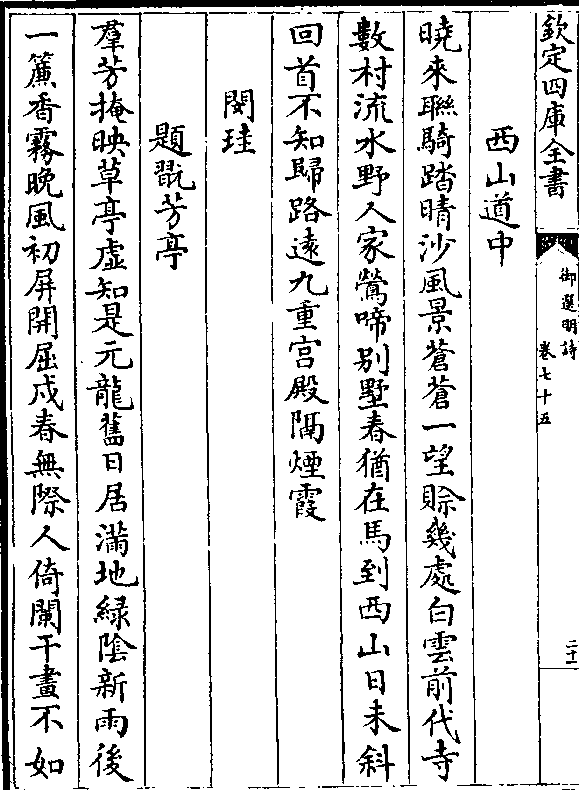 欽定四庫全書
御選明詩
卷七十五
二十一
西山道中
曉來聯騎踏晴沙風景蒼蒼一望賒幾處白雲前代寺
數村流水野人家鶯啼別墅春猶在馬到西山日未斜
回首不知歸路遠九重宮殿隔煙霞
閔珪
題翫芳亭
羣芳掩映草亭虛知是元龍舊日居滿地綠陰新雨後
一簾香霧晚風初屏開屈戍春無際人倚闌干畫不如